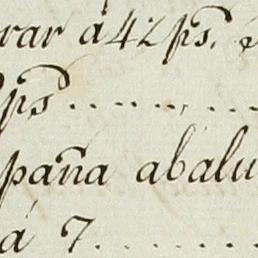 rar á 42 ps.
ps......
paña abalu
á 7........